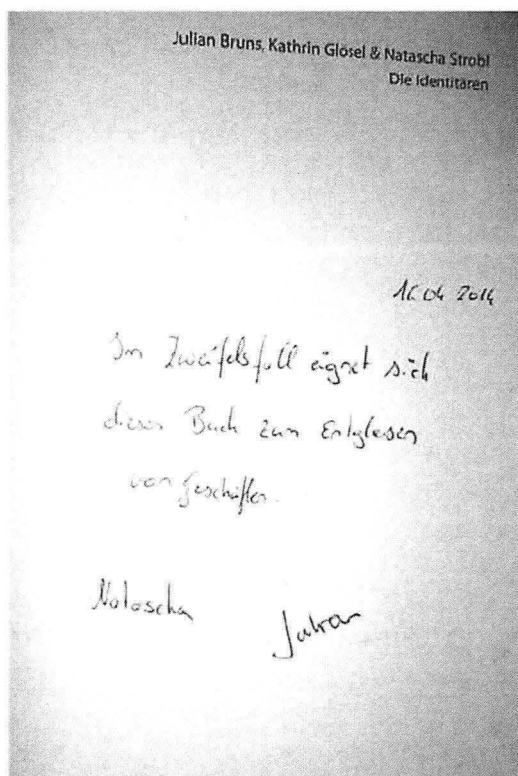 Julian Bruns, Kathrin Glösel & Natascha Strobl
Die Identitären
16 04 2014
Im Zweifelsfall eignet sich
dieses Buch zum Entglasen
von Geschäften.
Natascha Julian